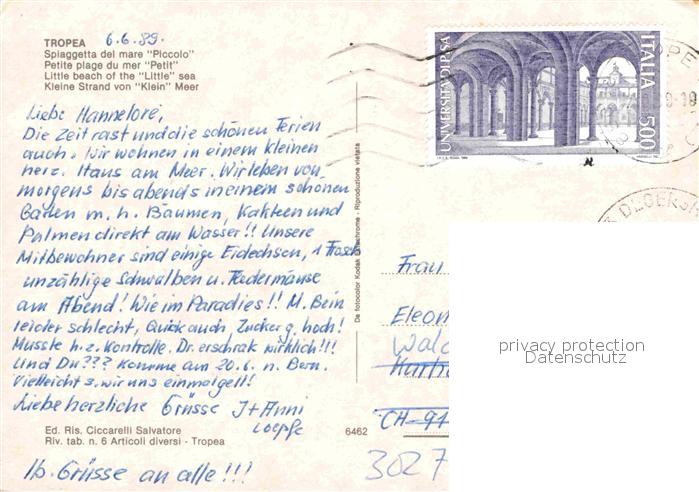 TROPEA 6.6.89.
Spiaggetta del mare "Piccolo"
Petite plage du mer "Petit"
Little beach of the "Little" sea
Kleine Strand von "Klein" Meer
Liebe Hannelore,
Die Zeit rast und die schönen Ferien
auch. Wir wohnen in einem kleinen
herz. Haus am Meer. Wir leben von
morgens bis abends in einem schönen
Garten m. h. Bäumen, Kakteen und
Palmen direkt am Wasser!! Unsere
Mitbewohner sind einige Eidechsen, 1 Frosch
unzählige Schwalben u. Fledermäuse
am Abend! Wie im Paradies!! M. Bein
leider schlecht, Quick auch Zucker g. hoch!
Musste h. z. Kontrolle. Dr. erschrak wirklich!!!
Und Du??? Komme am 20.6. n. Bern.
Vielleicht s. wir uns einmal gell!
Liebe herzliche Grüsse J + Anni
Loepfe
Ed. Ris. Ciccarelli Salvatore
Riv. tab. n. 6 Articoli diversi - Tropea
6462
lb. Grüsse an alle!!!
De fotocolor Kodak Ektachrome - Riproduzione vietata
UNIVERSITÀ DI PISA
ITALIA
500
Frau
Eleon
Wald
CH-91
3027
privacy protection
Datenschutz